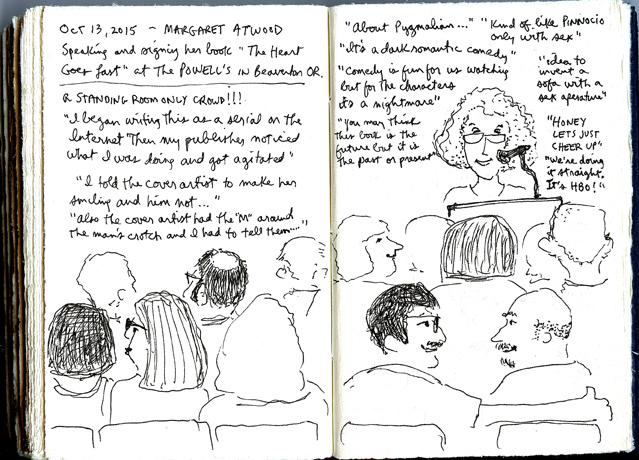 Oct 13, 2015 ~ MARGARET ATWOOD
Speaking and signing her book "The Heart
Goes Last" at The POWELL'S IN Beaverton OR.
A STANDING ROOM ONLY CROWD!!!
"I began writing this as a serial on the
Internet "Then my publisher noticed
what I was doing and got agitated"
"I told the cover artist to make her
smiling and him not..."
"also the cover artist had the "M" around
the man's crotch and I had to tell them...."
"About Pygmalion..."
"It's a dark romantic comedy"
"Comedy is fun for us watching
but for the characters
it's a nightmare"
"you may think
this book is the
future but it is
the past or present"
"Kind of like PINNOCIO
only with sex"
"idea to
invent a
sofa with a
sex aperature"
"HONEY
LETS JUST
CHEER UP"
"we're doing
it straight.
It's HBO!"